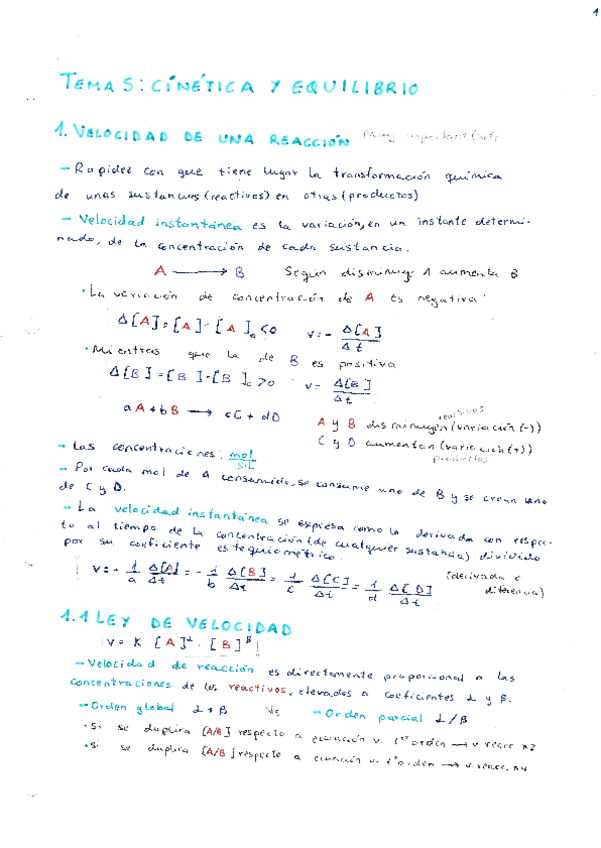 1
TEMA 5: CINÉTICA Y EQUILIBRIO
1. VELOCIDAD DE UNA REACCIÓN
- Rapidez con que tiene lugar la transformación química
de unas sustancias (reactivos) en otras (productos)
- Velocidad instantánea es la variación, en un instante determi-
nado, de la concentración de cada sustancia.
A → B Según disminuye A aumenta B
· La variación de concentración de A es negativa
Δ[A] = [A] - [A]₀ < 0 v = - Δ[A]/Δt
· Mientras que la de B es positiva
Δ[B] = [B] - [B]₀ > 0 v = Δ[B]/Δt
aA + bB → cC + dD
reactivos
A y B disminuyen (variación (-))
C y D aumentan (variación (+))
productos
- Las concentraciones: mol/s·L
- Por cada mol de A consumido, se consume uno de B y se crean uno
de C y D.
- La velocidad instantánea se expresa como la derivada con respec-
to al tiempo de la concentración (de cualquier sustancia) dividido
por su coeficiente estequiométrico.
v = - 1/a Δ[A]/Δt = - 1/b Δ[B]/Δt = 1/c Δ[C]/Δt = 1/d Δ[D]/Δt (derivada o
diferencia)
1.1 LEY DE VELOCIDAD
v = K · [A]^α · [B]^β
- Velocidad de reacción es directamente proporcional a las
concentraciones de los reactivos, elevados a coeficientes α y β.
- Orden global α + β vs - Orden parcial α/β
· Si se duplica [A/B] respecto a ecuación v. 1er orden → v reacc. x2
· Si se duplica [A/B] respecto a ecuación v. 2º orden → v reacc. x4